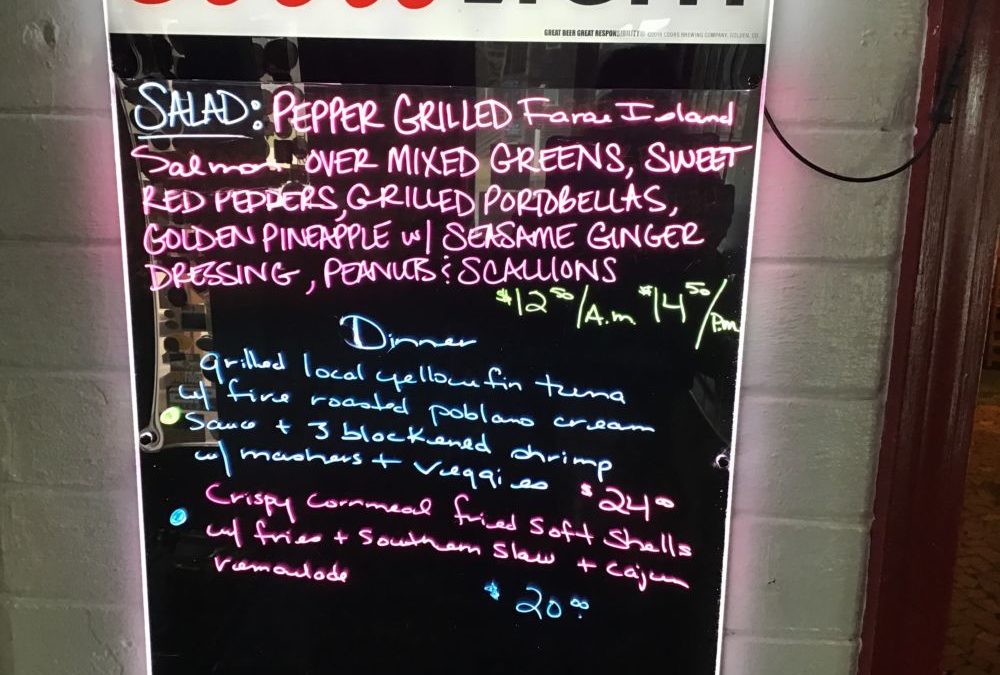 Coors LIGHT
GREAT BEER GREAT RESPONSIBILITY® ©2015 COORS BREWING COMPANY, GOLDEN, CO
SALAD: PEPPER GRILLED Faroe Island
Salmon OVER MIXED GREENS, SWEET
RED PEPPERS, GRILLED PORTOBELLAS,
GOLDEN PINEAPPLE w/ SEASAME GINGER
DRESSING, PEANUTS & SCALLIONS
$12 50/A.m. $14 50/P.m
Dinner
grilled local yellowfin tuna
w/ fire roasted poblano cream
Sauce + 3 blackened shrimp
w/ mashers + veggies
$24 00
Crispy Cornmeal fried Soft Shells
w/ fries + Southern Slaw + Cajun
remoulade
$20 00